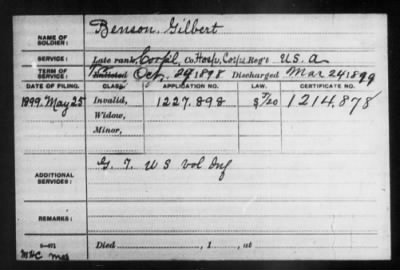 Benson, Gilbert
NAME OF SOLDIER:
SERVICE: Late rank, Corp'l, Co. Hosp. Corps, Reg't U.S.A
TERM OF SERVICE: Enlisted Oct. 29 1898 Discharged Mar 24 1899
DATE OF FILING. CLASS. APPLICATION NO. LAW. CERTIFICATE NO.
1899, May 25 Invalid, 1,227,898 1,214,878
Widow,
Minor,
G. 7. U S Vol Inf
ADDITIONAL SERVICES:
REMARKS:
Died , 1 , at